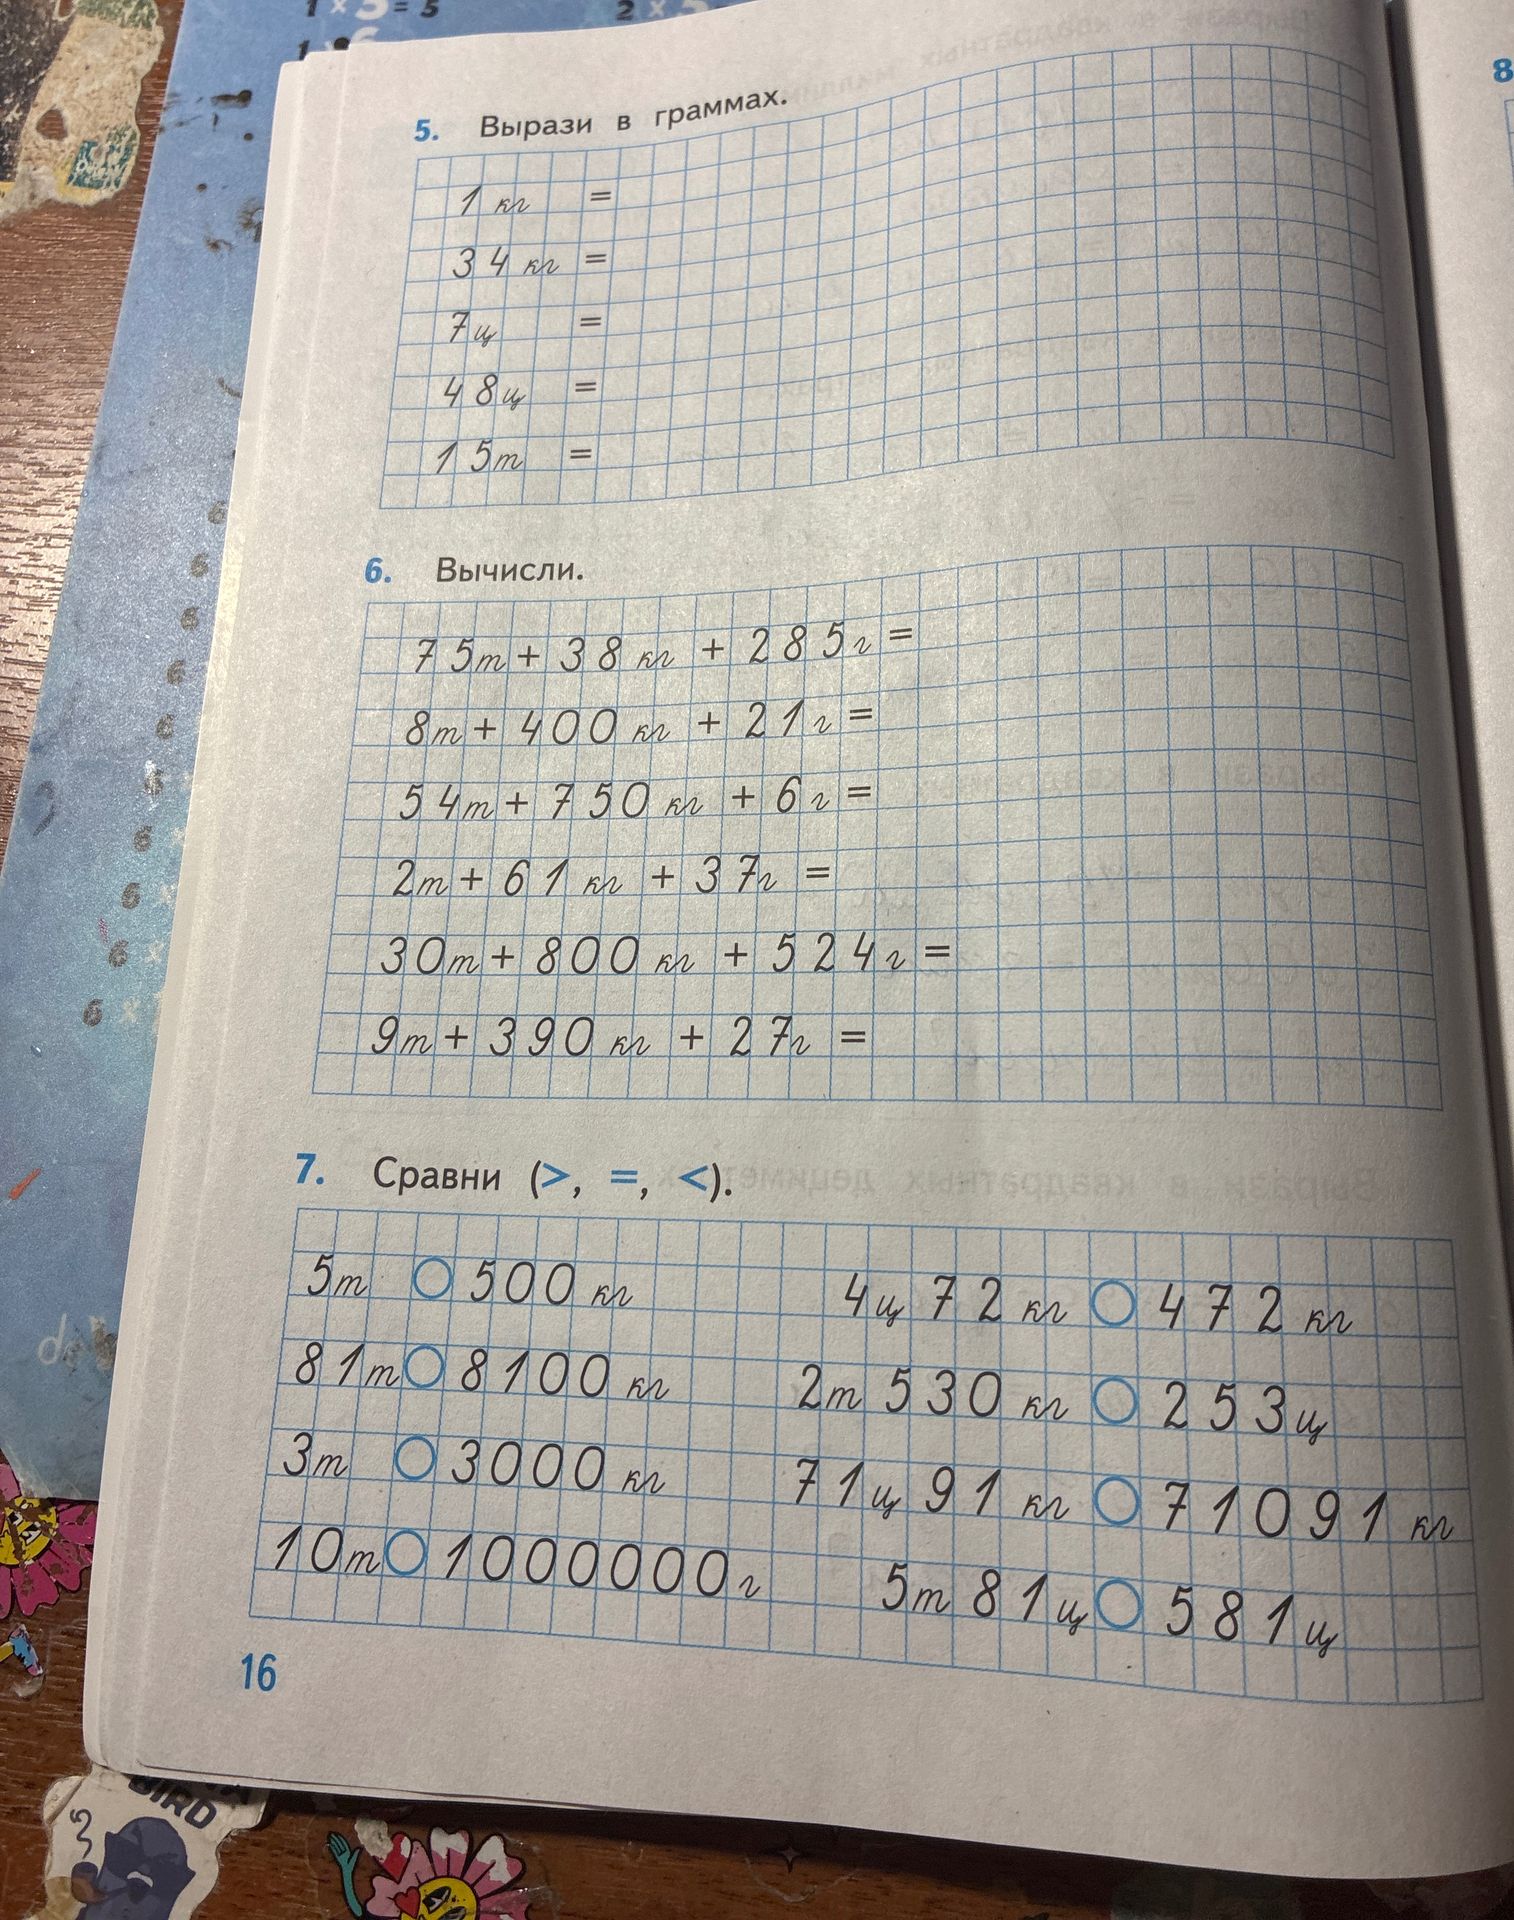 1 × 5 = 5
2 ×
5. Вырази в граммах.
1 кг =
34 кг =
7 ц =
48 ц =
15 т =
6. Вычисли.
75 т + 38 кг + 285 г =
8 т + 400 кг + 21 г =
54 т + 750 кг + 6 г =
2 т + 61 кг + 37 г =
30 т + 800 кг + 524 г =
9 т + 390 кг + 27 г =
7. Сравни (>, =, <).
5 т ○ 500 кг 4 ц 72 кг ○ 472 кг
81 т ○ 8100 кг 2 т 530 кг ○ 253 ц
3 т ○ 3000 кг 71 ц 91 кг ○ 71091 кг
10 т ○ 1000000 г 5 т 81 ц ○ 581 ц
16
8
6
6
6
6
6
6
6
6 ×
6 ×
6 ×
BIRD